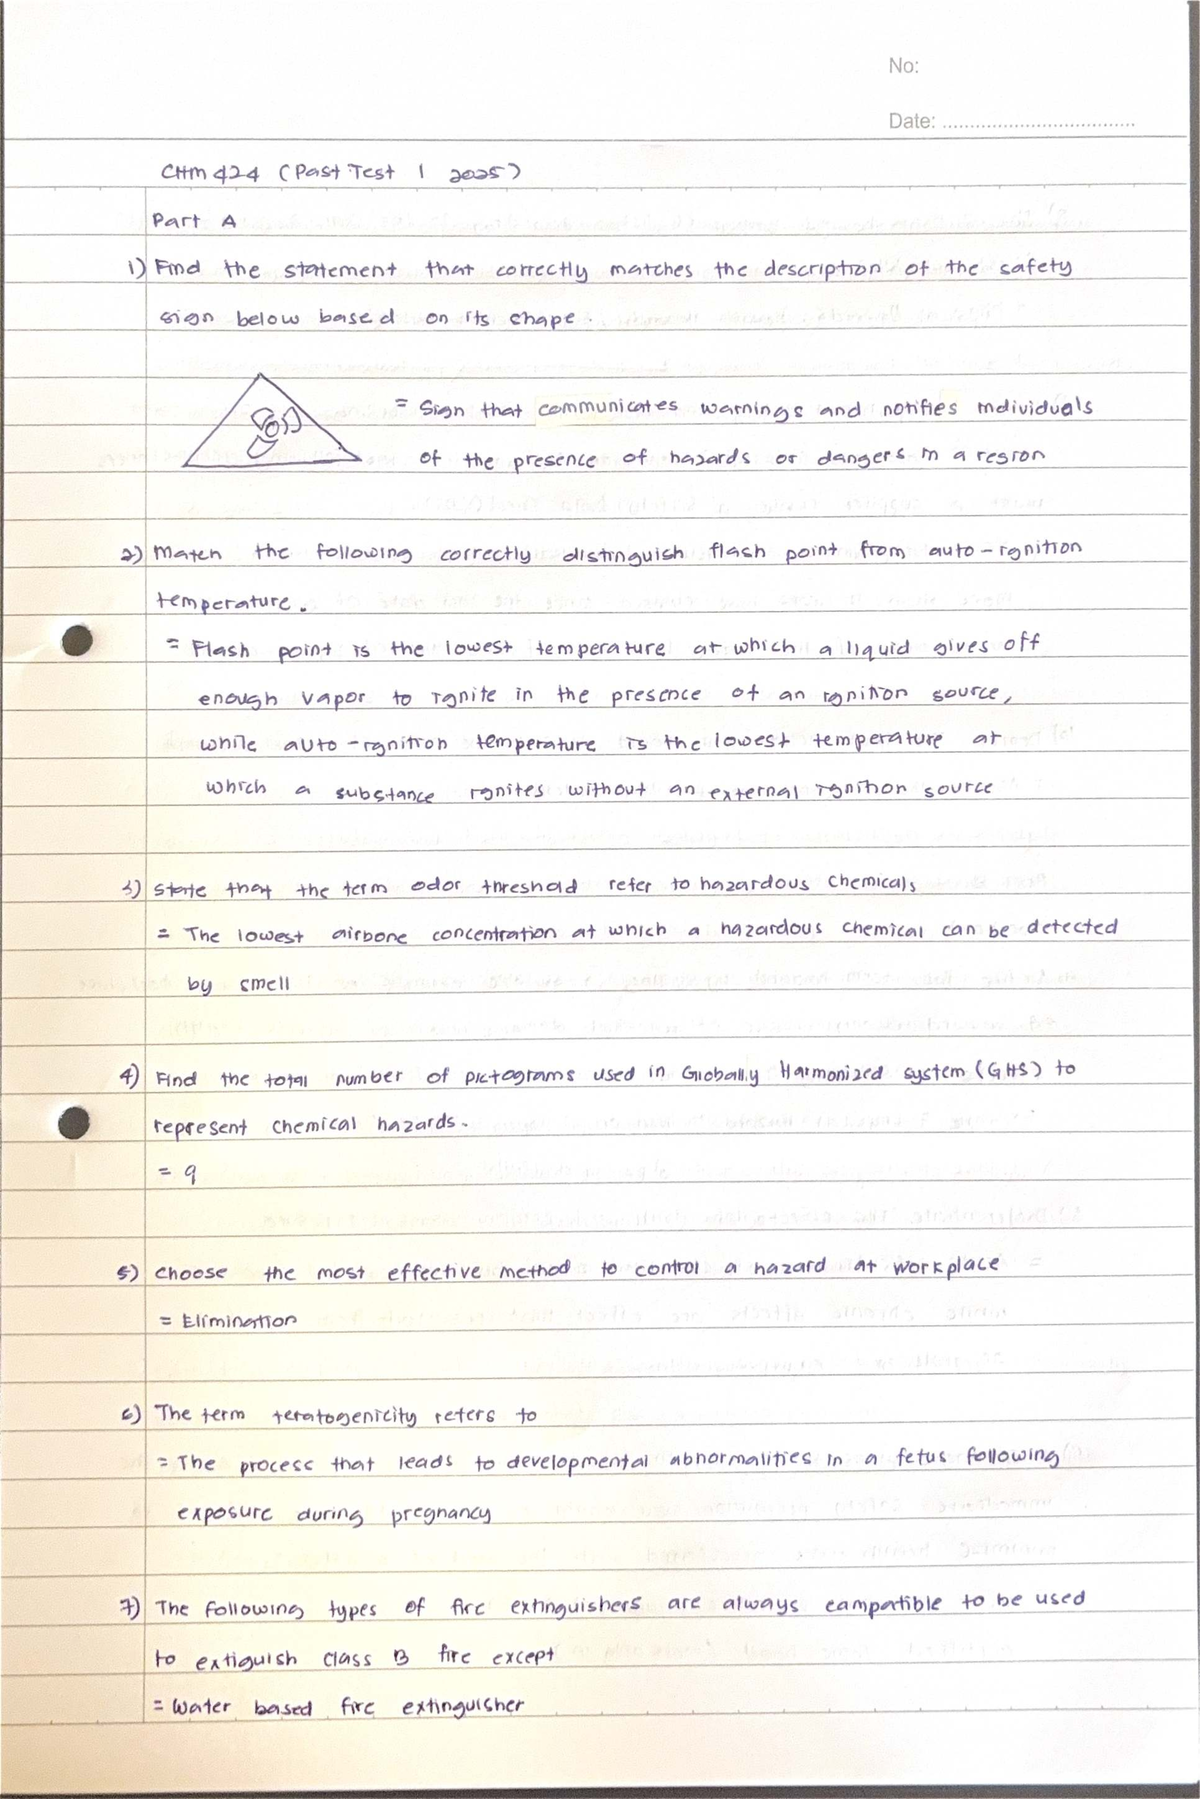 No:
Date: ....................................
CHM 424 (Past Test 1 2025)
Part A
1) Find the statement that correctly matches the description of the safety
sign below based on its shape.
= Sign that communicates warnings and notifies individuals
of the presence of hazards or dangers in a region
2) Match the following correctly distinguish flash point from auto-ignition
temperature.
= Flash point is the lowest temperature at which a liquid gives off
enough vapor to ignite in the presence of an ignition source,
while auto-ignition temperature is the lowest temperature at
which a substance ignites without an external ignition source
3) State that the term odor threshold refer to hazardous chemicals
= The lowest airbone concentration at which a hazardous chemical can be detected
by smell
4) Find the total number of pictograms used in Globally Harmonized system (GHS) to
represent chemical hazards.
= 9
5) choose the most effective method to control a hazard at workplace
= Elimination
6) The term teratogenicity refers to
= The process that leads to developmental abnormalities in a fetus following
exposure during pregnancy
7) The following types of fire extinguishers are always campatible to be used
to extiguish class B fire except
= Water based fire extinguisher